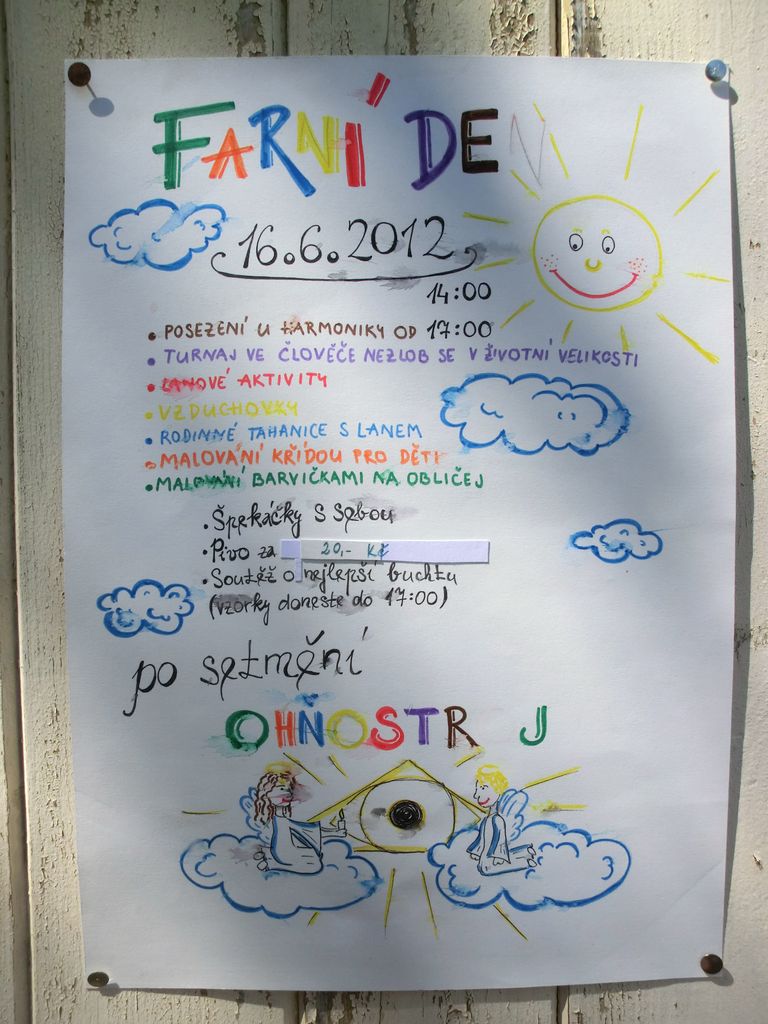 FARNÍ DEN
16.6.2012
14:00
• POSEZENÍ U HARMONIKY OD 17:00
• TURNAJ VE ČLOVĚČE NEZLOB SE V ŽIVOTNÍ VELIKOSTI
• LANOVÉ AKTIVITY
• VZDUCHOVKY
• RODINNÉ TAHANICE S LANEM
• MALOVÁNÍ KŘÍDOU PRO DĚTI
• MALOVÁNÍ BARVIČKAMI NA OBLIČEJ
• Špekáčky s sebou
• Pivo za 20,- Kč
• Soutěž o nejlepší buchtu
(vzorky doneste do 17:00)
po setmění
OHŇOSTR J